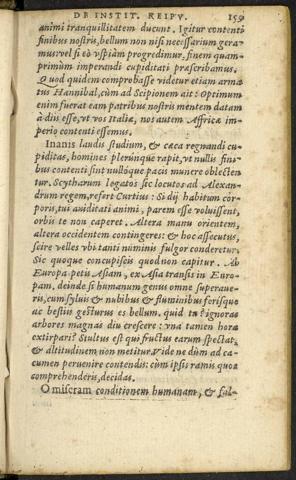 DE INSTIT. REIPV. 159
animi tranquillitatem ducunt. Igitur contenti
finibus nostris, bellum non nisi necessarium gera-
mus: vel si eò vspiàm progredimur, finem quàm-
primùm imperandi cupiditati præscribamus.
Quod quidem comprobasse videtur etiam arma-
tus Hannibal, cùm ad Scipionem ait: Optimum
enim fuerat eam patribus nostris mentem datam
à diis esse, vt vos Italiæ, nos autem Affricæ im-
perio contenti essemus.
Inanis laudis studium, & cæca regnandi cu-
piditas, homines plerunque rapit, vt nullis fini-
bus contenti sint nullóque pacis munere oblecten-
tur. Scytharum legatos sic locutos ad Alexan-
drum regem, refert Curtius: Si dij habitum cor-
poris, tui auiditati animi, parem esse voluissent,
orbis te non caperet. Altera manu orientem,
altera occidentem contingeres: & hoc assecutus,
scire velles vbi tanti numinis fulgor conderetur.
Sic quoque concupiscis quod non capitur. Ab
Europa petis Asiam, ex Asia transis in Euro-
pam, deinde si humanum genus omne superaue-
ris, cum syluis & nubibus & fluminibus ferisque
ac bestiis gesturus es bellum. quid tu? ignoras
arbores magnas diu crescere: vna tamen hora
extirpari? Stultus est qui fructus earum spectat,
& altitudinem non metitur. Vide ne dum ad ca-
cumen peruenire contendis: cùm ipsis ramis quos
comprehenderis, decidas.
O miseram conditionem humanam, & fal-